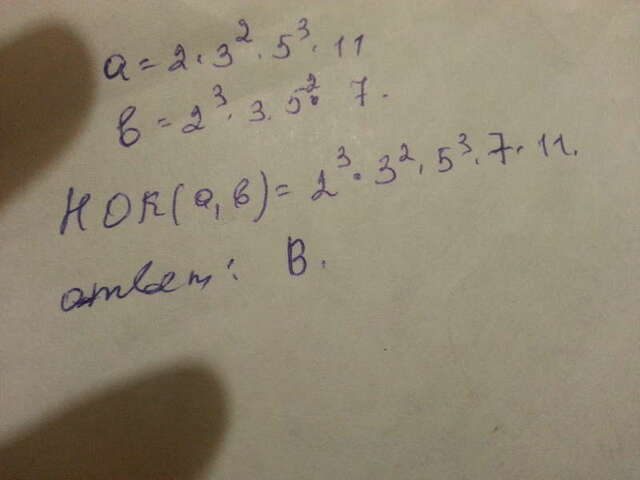 a = 2 · 3² · 5³ · 11
b = 2³ · 3 . 5² · 7 .
НОК(a, b) = 2³ · 3² . 5³ . 7 · 11.
ответ: В.